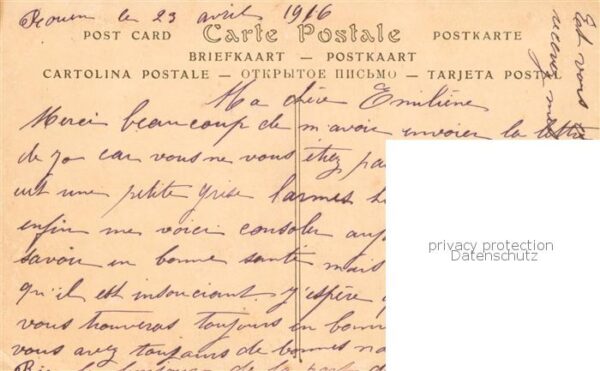 Rouen le 23 avril 1916
Carte Postale
POST CARD POSTKARTE
BRIEFKAART — POSTKAART
CARTOLINA POSTALE — ОТКРЫТОЕ ПИСЬМО — TARJETA POSTAL
Ma chère Emiliène
Merci beaucoup de m avoir envoier la lettre
de Jo car vous ne vous étiez pa
une petite crise larmes
enfin me voici consoler
savoir en bonne santé mais
qu'il est insouciant. J'espère
vous trouveras toujours en bonne
vous avez toujours de bonnes no
de la part d
Est vous
privacy protection
Datenschutz